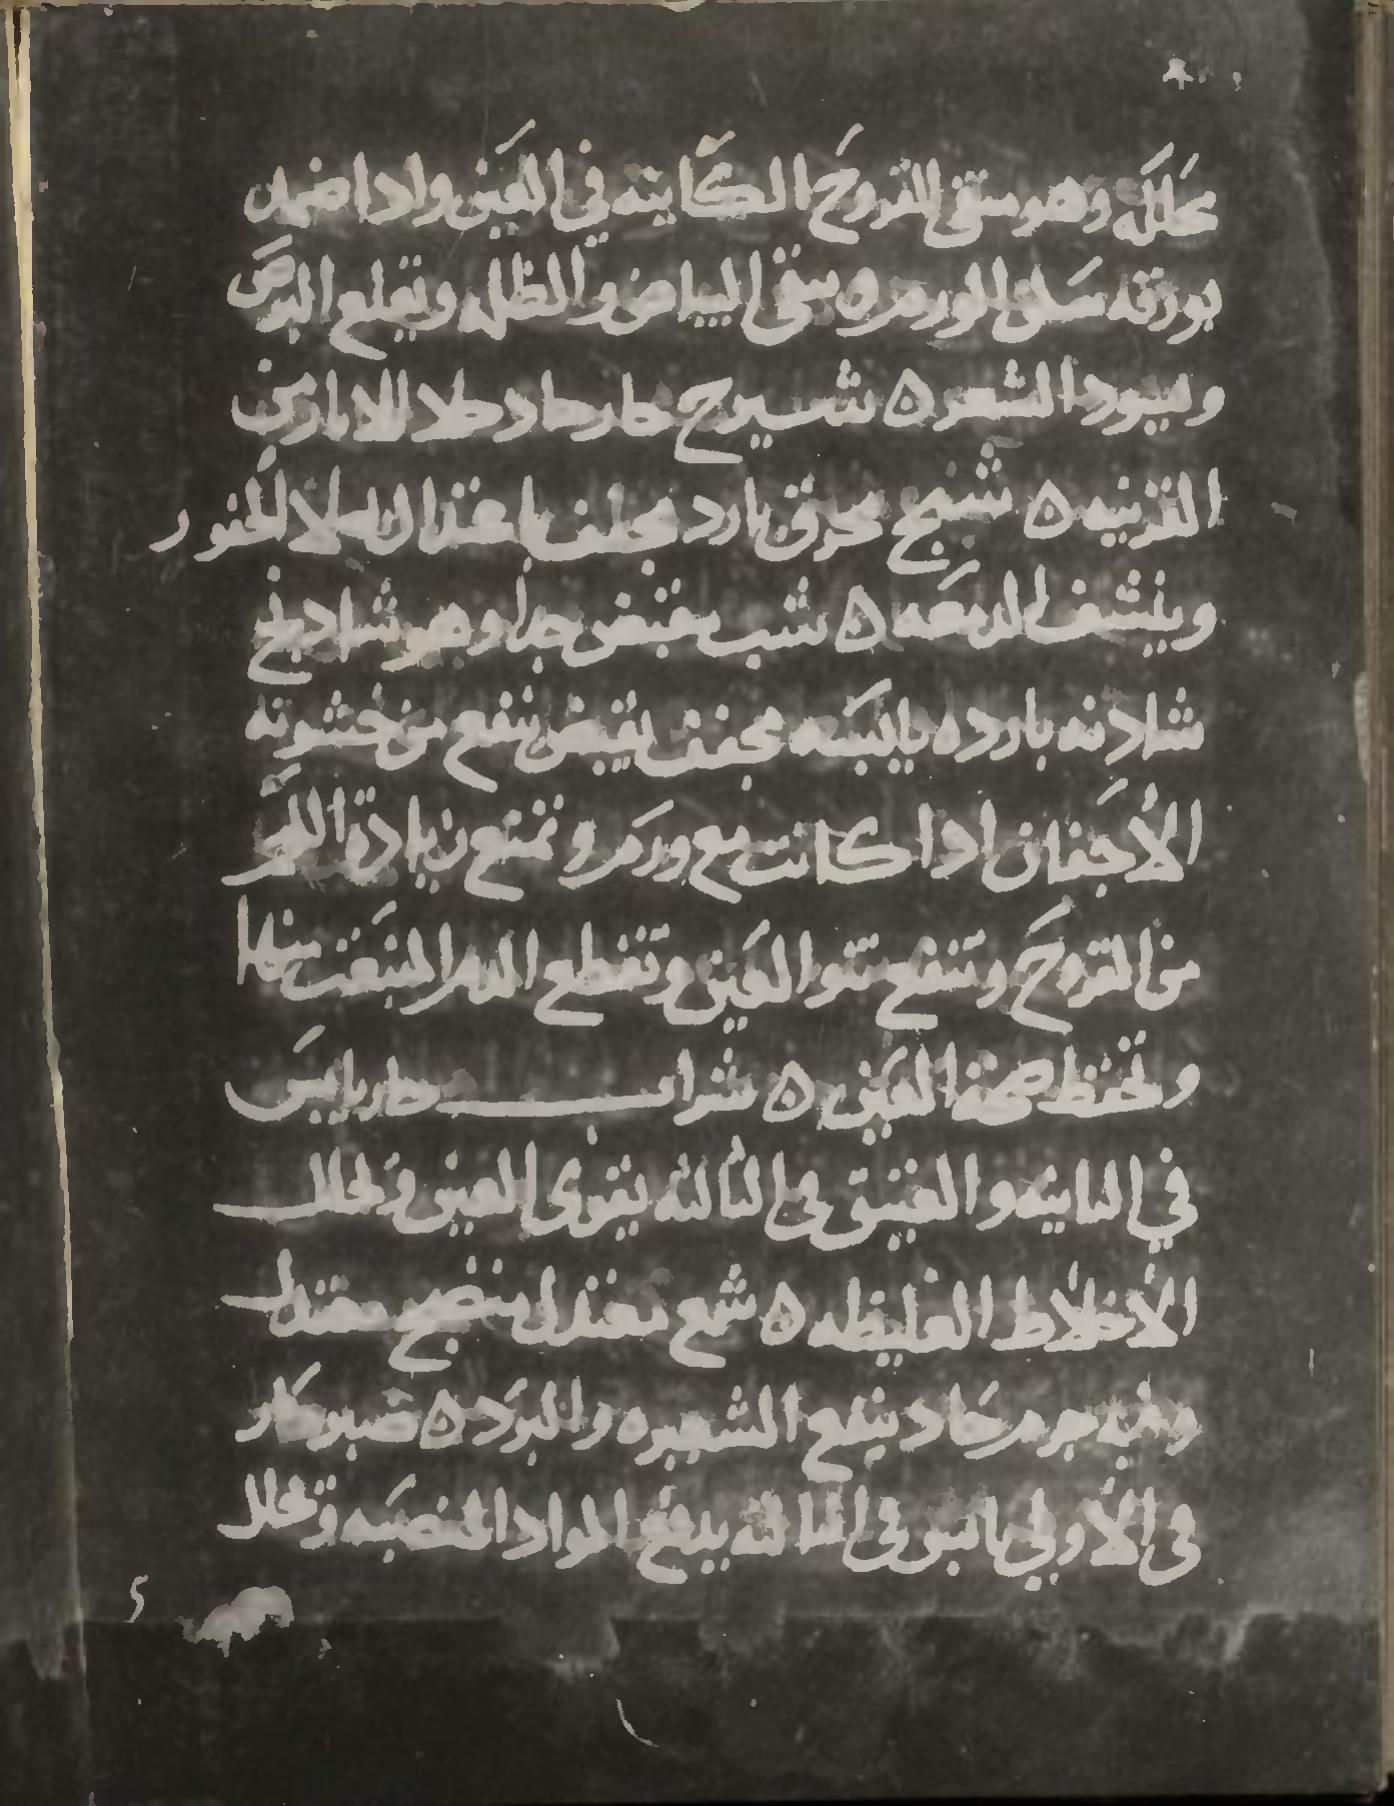 محلله وهو ينقى للقروح الكاينه في العين واذا ضمد
بورقه سكن الورم ٥ ينقى البياض والظلمه ويقلع البرص
ويسود الشعر ٥ شيرج حار حاد طلا للاثار من
القرنيه ٥ شيح محرق بارد مجفف باعتدال يملا الحفور
وينشف الدمعه ٥ شب يقبض جدا وهو شادنج
شادنه بارده يابسه مجفف يقبض ينفع من خشونه
الأجفان اذا كانت مع ورم وتمنع زيادة اللحم
من القروح وتنفع نتوا العين وتقطع الدم المنبعث منها
وتحفظ صحة العين ٥ شراب حار يابس
في الثانيه والعتيق في الثالثه يقوى العين ويحلل
الأخلاط الغليظه ٥ شمع معتدل ينضج معتدل
جرم حاد ينفع الشعيره والبرد ٥ صبر حار
في الأولى يابس في الثالثه يدفع المواد المنصبه ويحلل